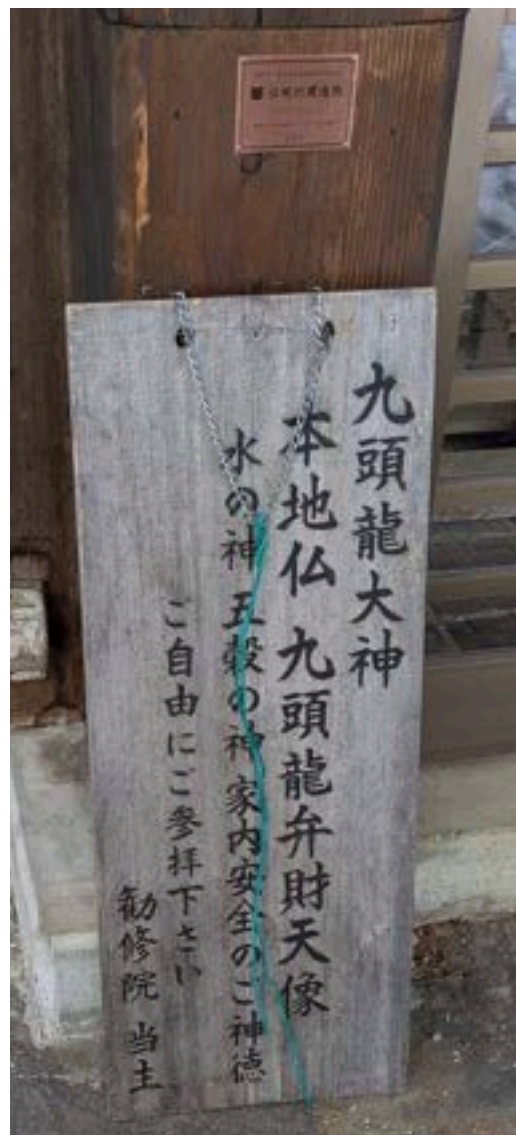 九頭龍大神
本地仏 九頭龍弁財天像
水の神 五穀の神 家内安全のご神徳
ご自由にご参拝下さい
勧修院 当主